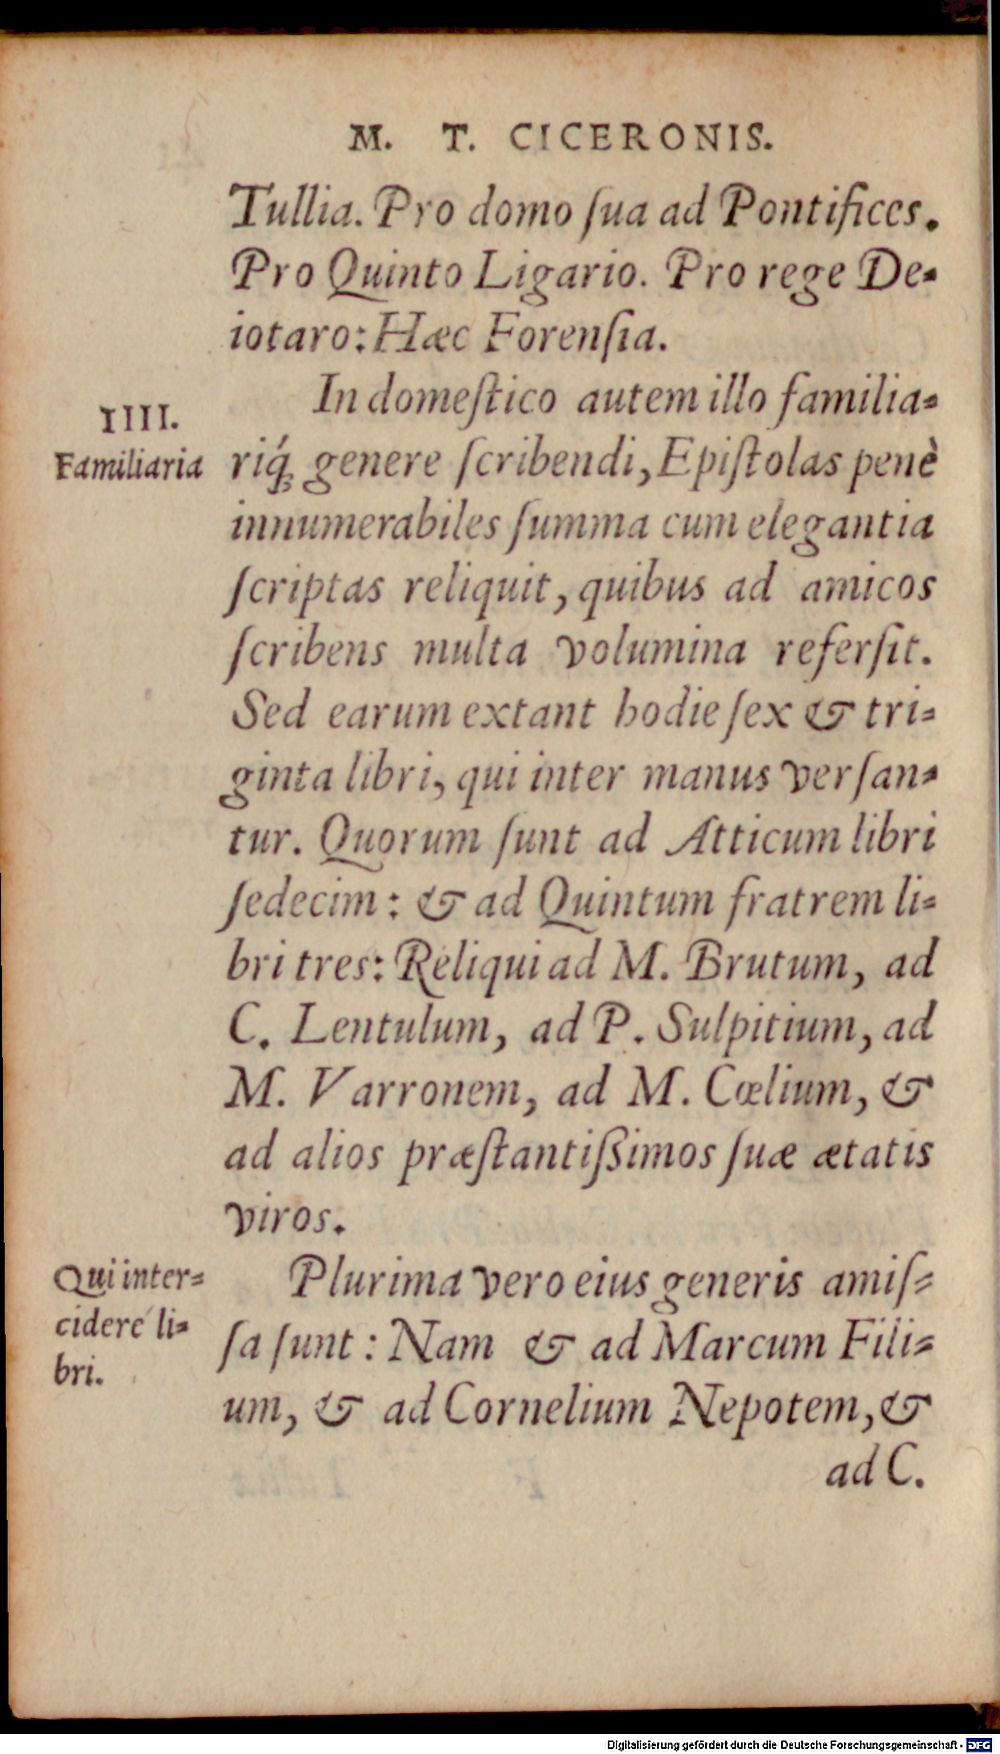 M. T. CICERONIS.
Tullia. Pro domo ſua ad Pontifices.
Pro Quinto Ligario. Pro rege De-
iotaro: Hæc Forenſia.
IIII.
Familiaria
In domeſtico autem illo familia-
riq́; genere ſcribendi, Epiſtolas penè
innumerabiles ſumma cum elegantia
ſcriptas reliquit, quibus ad amicos
ſcribens multa volumina referſit.
Sed earum extant hodie ſex & tri-
ginta libri, qui inter manus verſan-
tur. Quorum ſunt ad Atticum libri
ſedecim: & ad Quintum fratrem li-
bri tres: Reliqui ad M. Brutum, ad
C. Lentulum, ad P. Sulpitium, ad
M. Varronem, ad M. Cœlium, &
ad alios præſtantiſsimos ſuæ ætatis
viros.
Qui inter-
cidere li-
bri.
Plurima vero eius generis amiſ-
ſa ſunt: Nam & ad Marcum Fili-
um, & ad Cornelium Nepotem, &
ad C.
Digitalisierung gefördert durch die Deutsche Forschungsgemeinschaft - DFG